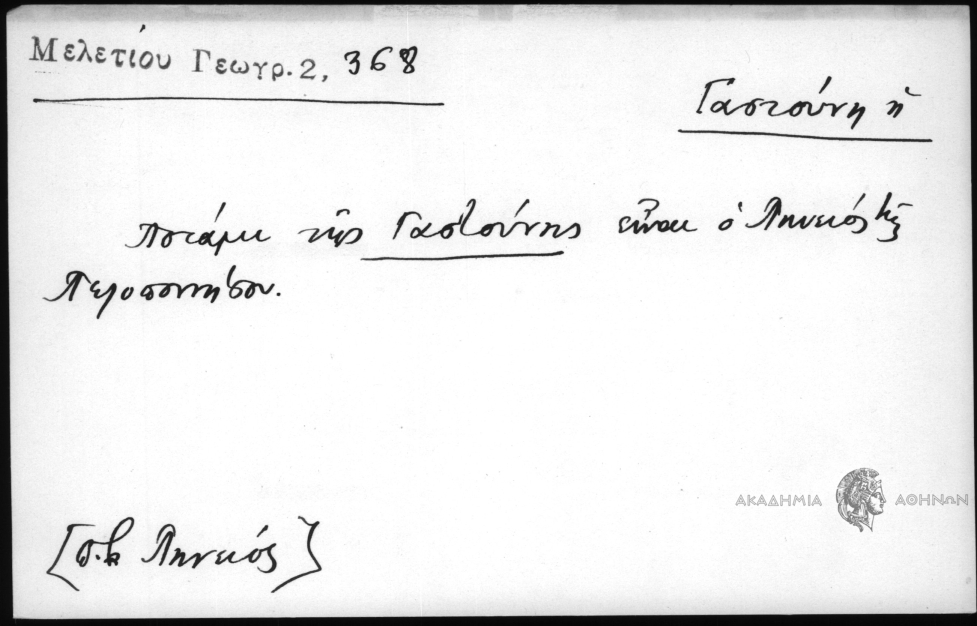 Μελετίου Γεωγρ. 2, 368
Γαστούνη ἡ
Ποτάμι τῆς Γαστούνης εἶναι ὁ Πηνειός τῆς
Πελοποννήσου.
ΑΚΑΔΗΜΙΑ ΑΘΗΝΩΝ
[π.β Πηνειός]